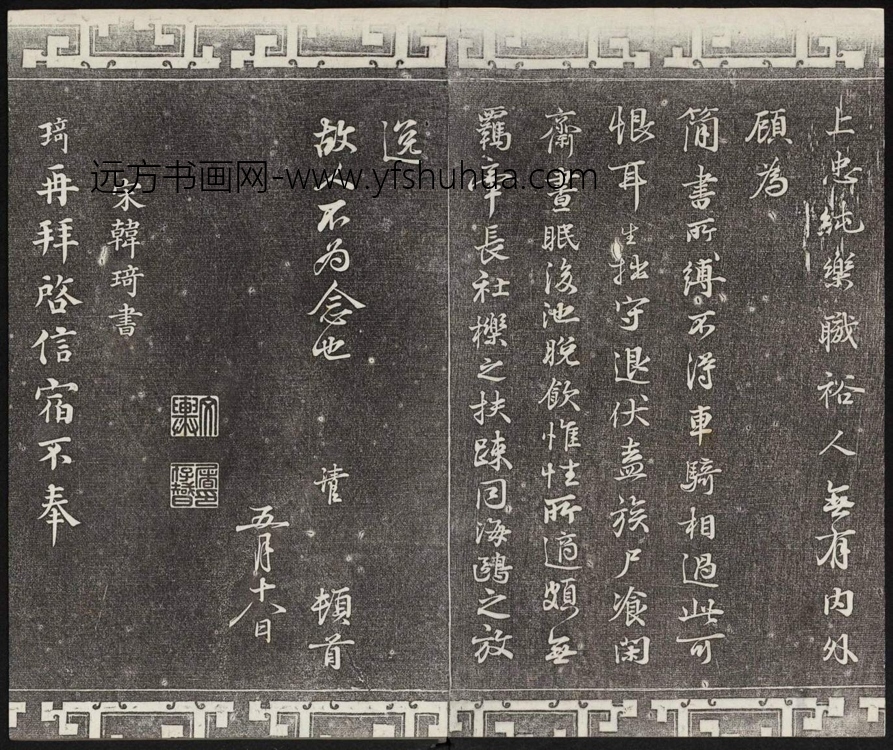 上忠純樂職裕人無有内外
顧為
簡書所縛不得車騎相過此可
恨耳生拙守退伏盍族尸飡閑
齋晝眠後池晚飲惟性所適頗無
羈長社櫟之扶踈同海鷗之放
逸
故人不为念也 頓首
五月十八日
宋韓琦書
琦再拜啓信宿不奉
远方书画网-www.yfshuhua.com